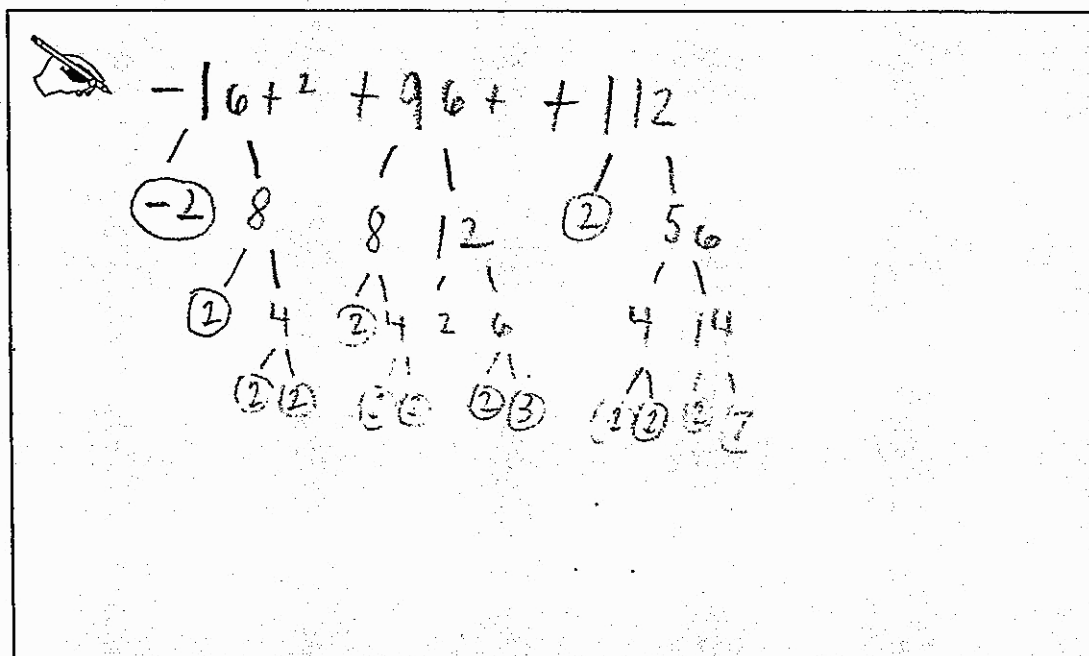 -16t² + 96t + 112
-2 8 8 12 2 56
2 4 2 4 2 6 4 14
2 2 2 2 2 3 2 2 2 7